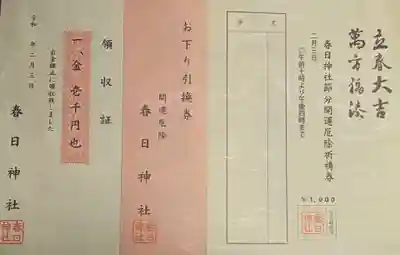 立春大吉
萬方福湊
二月三日
春日神社節分開運厄除祈祷券
◎午前十時より午後四時まで
￥1,000
春日神社
お下り引換券
開運厄除
春日神社
領収証
一、金 壱千円也
右金額正に領収致しました
令和 年二月三日
春日神社
春日神社